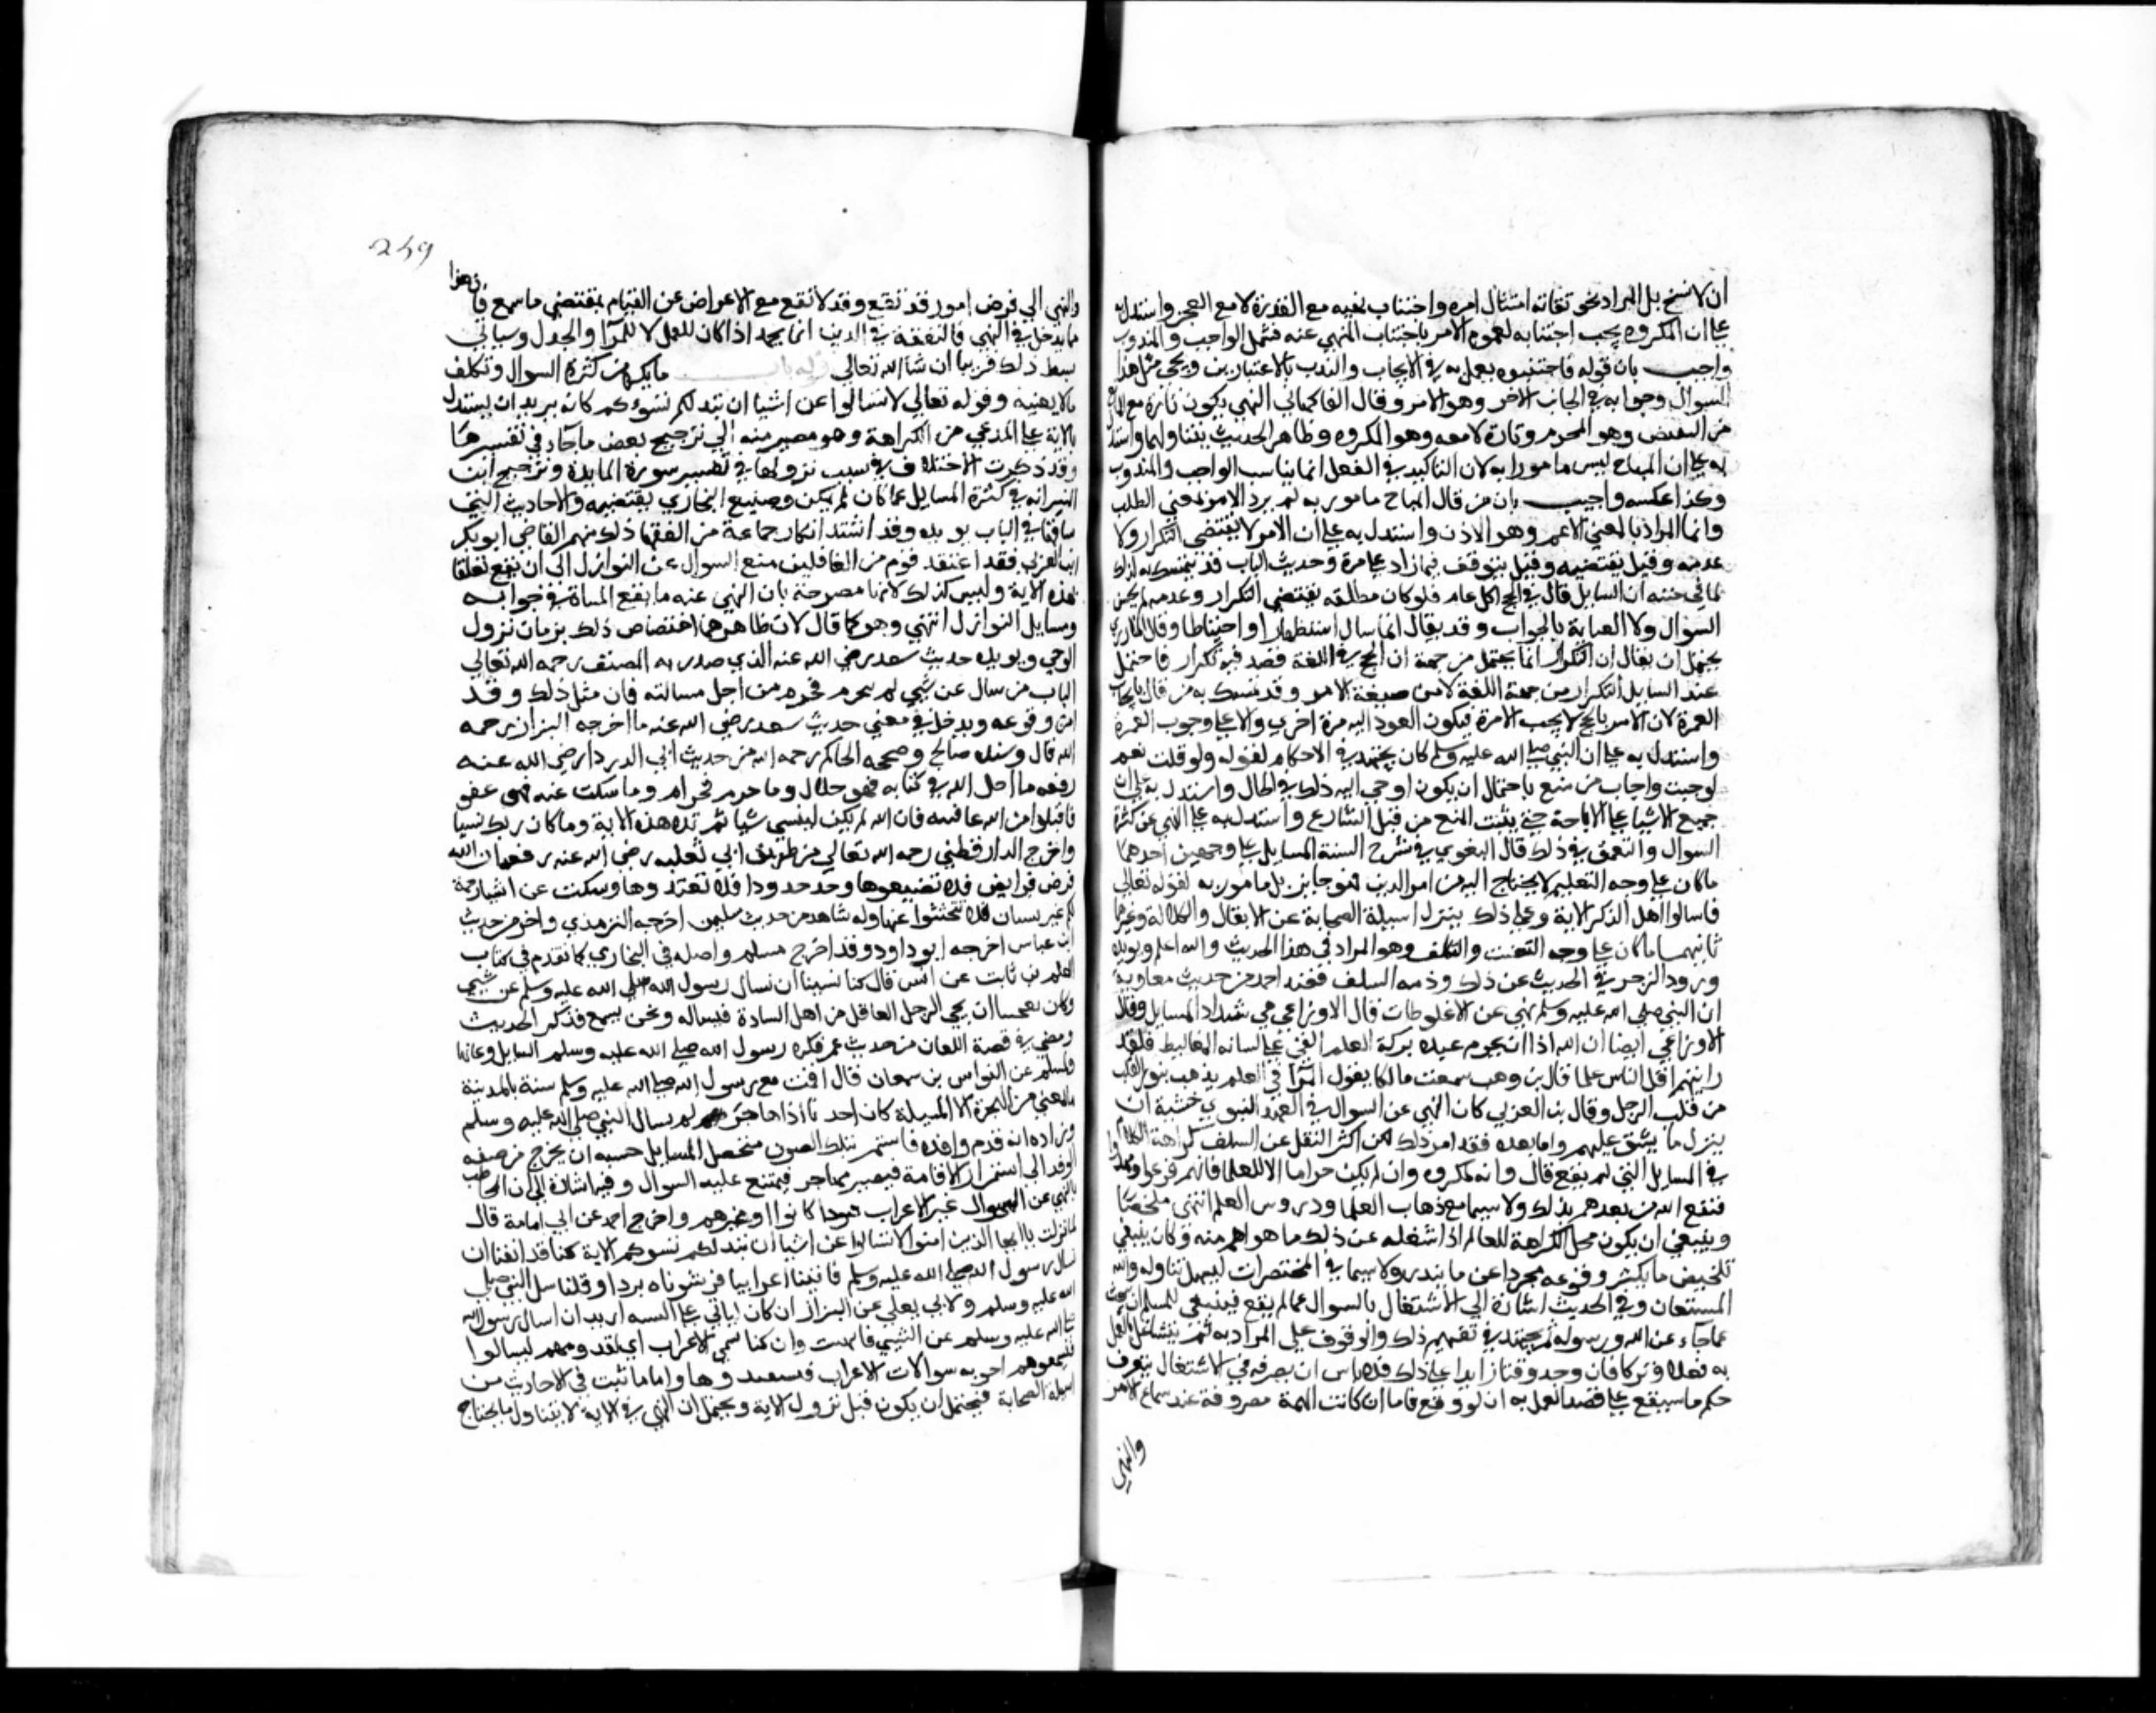 ان لا نسخ بل المراد بحق تقاته امتثال امره واجتناب نهيه مع القدرة لا مع العجز واستدل به
على ان المكروه يجب اجتنابه لعموم الامر باجتناب المنهي عنه فشمل الواجب والمندوب
واجيب بان قوله فاجتنبوه يعمل به في الايجاب والندب بالاعتبارين ويجي مثل هذا
السوال وجوابه في الجانب الاخر وهو الامر وقال الفاكهاني النهي يكون تارة مع المانع
من النقيض وهو المحرم وتارة لا معه وهو المكروه وظاهر الحديث يتناولهما واستدل
به على ان المباح ليس مامورا به لان التاكيد في الفعل انما يناسب الواجب والمندوب
وكذا عكسه واجيب بان من قال المباح مامور به لم يرد الامر بمعنى الطلب
وانما المراد بالمعنى الاعم وهو الاذن واستدل به على ان الامر لا يقتضي التكرار ولا
عدمه وقيل يقتضيه وقيل يتوقف فيما زاد على مرة وحديث الباب قد يتمسك به لذلك
لما في حتنه ان السايل قال في الحج اكل عام فلو كان مطلقه يقتضي التكرار وعدمه لم يحسن
السوال ولا العناية بالجواب وقد يقال انما سال استظهارا واحتياطا وقال المازري
يحتمل ان يقال ان التكرار انما يحتمل من جهة ان الحج في اللغة قصد فيه تكرار فاحتمل
عند السايل التكرار من جهة اللغة لا من صيغة الامر وقد تمسك به من قال بايجاب
العمرة لان الامر بالحج لا يجب الا مرة فيكون العود اليه مرة اخرى والاعلى وجوب العمرة
واستدل به على ان النبي صلى الله عليه وسلم كان يجتهد في الاحكام لقوله ولو قلت نعم
لوجبت واجاب من منع باحتمال ان يكون اوحي اليه ذلك في الحال واستدل به على ان
جميع الاشيا على الاباحة حتى يثبت المنع من قبل الشارع واستدل به على النهي عن كثرة
السوال والتعمق في ذلك قال البغوي في شرح السنة المسايل على وجهين احدهما
ماكان على وجه التعليم لا يحتاج اليه من امر الدين فهو جايز بل مامور به لقوله تعالى
فاسالوا اهل الذكر الاية وعلى ذلك يتنزل اسيلة الصحابة عن الانفال والكلالة وغيرهما
ثانيهما ماكان على وجه التعنت والتكلف وهو المراد في هذا الحديث والله اعلم ويويده
ورود الزجر في الحديث عن ذلك وذمه السلف فعند احمد من حديث معاوية
ان النبي صلى الله عليه وسلم نهى عن الاغلوطات قال الاوزاعي هي شداد المسايل وقال
الاوزاعي ايضا ان الله اذا اراد ان يحرم عبده بركة العلم القي على لسانه المغاليط فلقد
رايتهم اقل الناس علما قال بن وهب سمعت مالكا يقول المرا في العلم يذهب بنور القلب
من قلب الرجل وقال بن العزبي كان النهي عن السوال في العهد النبوي خشية ان
ينزل ما يشق عليهم واما بعده فقد امن ذلك لكن اكثر النقل عن السلف كراهة الكلام
في المسايل التي لم يقع قال وانه لمكروه وان لم يكن حراما الا للعلما فانهم فرعوا ومهدوا
فنفع الله من بعدهم بذلك ولاسيما مع ذهاب العلما ودروس العلم انتهى ملخصا
وينبغي ان يكون محل الكراهة للعالم اذا شغله عن ذلك ما هو اهم منه وكان ينبغي
تلخيص ما يكثر وقوعه مجردا عن ما يندر ولاسيما في المختصرات ليسهل تناوله والله
المستعان وفي الحديث اشارة الى الاشتغال بالسوال عما لم يقع فينبغي للمسلم ان يبحث
عما جاء عن الله ورسوله ثم يجتهد في تفهيم ذلك والوقوف على المراد به ثم يتشاغل بالعمل
به فعلا وتركا فان وجد وقتا زايدا على ذلك فلا باس ان يصرفه في الاشتغال بتعرف
حكم ما سيقع على قصد العمل به ان لو وقع فاما ان كانت الهمة مصروفة عند سماع الامر
والنهي
259
والنهي الى فرض امور قد تقع وقد لا تقع مع الاعراض عن القيام بمقتضى ما سمع فان هذا
مما يدخل في النهي فالتفقه في الدين انما يحمد اذا كان للعمل لا للمرا والجدل وسياتي
بسط ذلك قريبا ان شا الله تعالى قوله باب ما يكره من كثرة السوال وتكلف
مالا يعنيه وقوله تعالى لا تسالوا عن اشيا ان تبد لكم تسؤكم كانه يريد ان يستدل
بالاية على المدعي من الكراهة وهو مصير منه الى ترجيح بعض ماجاء في تفسيرها
وقد ذكرت الاختلاف في سبب نزولها في تفسير سورة المايدة وترجيح ابن
المنير انه في كثرة المسايل عما كان لم يكن وصنيع البخاري يقتضيه والاحاديث التي
ساقها في الباب يويده وقد اشتد انكار جماعة من الفقها ذلك منهم القاضي ابو بكر
ابن العزبي فقد اعتقد قوم من الغافلين منع السوال عن النوازل الى ان يقع تعلقا
بهذه الاية وليس كذلك لانها مصرحة بان النهي عنه ما يقع المساة في جوابه
ومسايل النوازل انتهى وهو كما قال لان ظاهرهما اختصاص ذلك بزمان نزول
الوحي ويويده حديث سعد رضي الله عنه الذي صدر به المصنف رحمه الله تعالى
الباب من سال عن شي لم يحرم فحرم من اجل مسالته فان مثل ذلك وقد
امن وقوعه ويدخل في معنى حديث سعد رضي الله عنه ما اخرجه البزار رحمه
الله قال وسنده صالح وصححه الحاكم رحمه الله من حديث ابي الدرداء رضي الله عنه
رفعه ما احل الله في كتابه فهو حلال وما حرم فحرام وما سكت عنه فهو عفو
فاقبلوا من الله عافيته فان الله لم يكن لينسى شيا ثم تلا هذه الاية وما كان ربك نسيا
واخرج الدارقطني رحمه الله تعالى من طريق ابي ثعلبه رضي الله عنه رفعه ان الله
فرض فرايض فلا تضيعوها وحد حدودا فلا تعتدوها وسكت عن اشيا رحمة
لكم غير نسيان فلا تبحثوا عنها وله شاهد من حديث سليمن اخرجه الترمذي واخر من حديث
ابن عباس اخرجه ابو داود وقد اخرج مسلم واصله في البخاري كما تقدم في كتاب
العلم بن ثابت عن انس قال كنا نهينا ان نسال رسول الله صلى الله عليه وسلم عن شي
وكان يعجبنا ان يجي الرجل العاقل من اهل البادة فيساله ونحن نسمع فذكر الحديث
ومضى في قصة اللعان من حديث عمر فكره رسول الله صلى الله عليه وسلم المسايل وعابها
ولمسلم عن النواس بن سمعان قال اقمت مع رسول الله صلى الله عليه وسلم سنة بالمدينة
ما يمنعني من الهجرة الا المسيلة كان احدنا اذا هاجر لم يسال النبي صلى الله عليه وسلم
ومراده انه قدم وافدا فاستمر بتلك الصورة متحصل المسايل خشيه ان يخرج من صفه
الوفد الى استمرار الاقامة فيصير مهاجر فيمتنع عليه السوال وفيه اشارة الى ان المخاطب
بالنهي عن السوال غير الاعراب وفودا كانوا او غيرهم واخرج احمد عن ابي امامة قال
لما نزلت يا ايها الذين امنوا لا تسالوا عن اشيا ان تبد لكم تسوكم الاية كنا قد اتقينا ان
نسال رسول الله صلى الله عليه وسلم فاتينا اعرابيا فرشوناه بردا وقلنا سل النبي صلى
الله عليه وسلم ولابي يعلى عن البراز ان كان لياتي علي السنة اريد ان اسال رسول الله
صلى الله عليه وسلم عن الشي فاتهيت وان كنا لنتمنى الاعراب اي لقدومهم ليسالوا
فيسمعوهم اجوبه سوالات الاعراب فيستفيدوها واما ما ثبت في الاحاديث من
اسيلة الصحابة فيحتمل ان يكون قبل نزول الاية ويحتمل ان النهي في الاية لا يتناول ما يحتاج